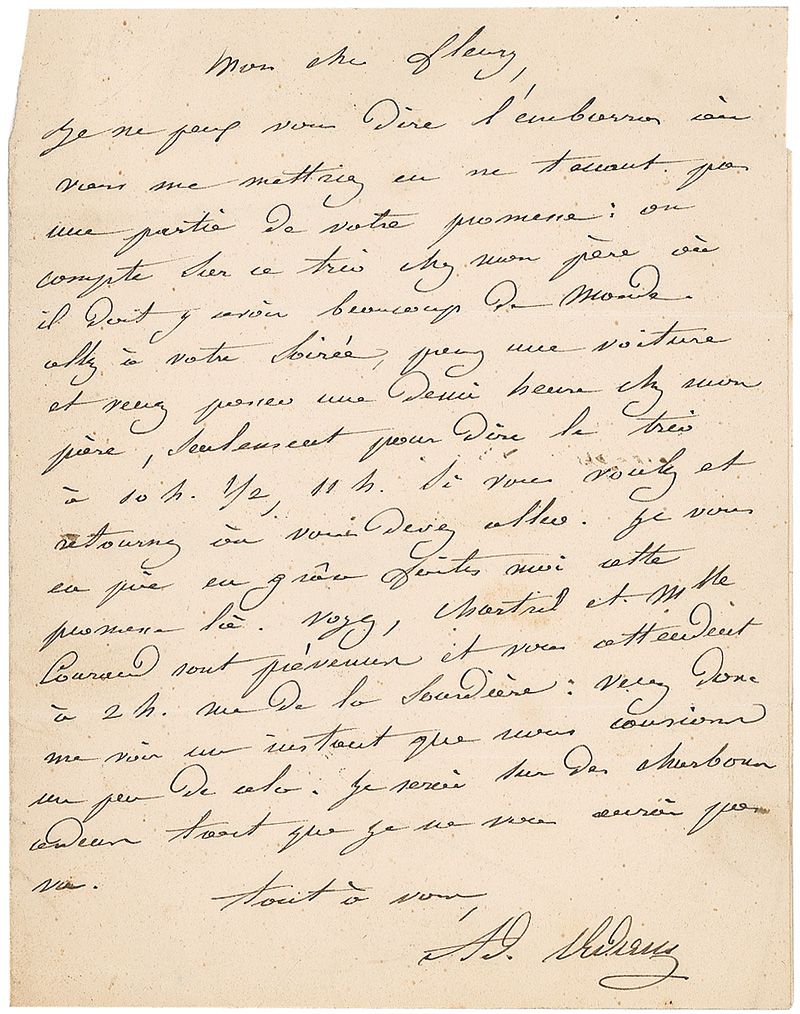 Mon cher Fleury,
Je ne peux vous dire l'embarras où
vous me mettriez en ne tenant pas
une partie de votre promesse : on
compte sur ce trio chez mon père où
il doit y avoir beaucoup de monde.
allez à votre soirée, penez une voiture
et venez passer une demi heure chez mon
père, seulement pour dire le trio
à 10 h. 1/2, 11 h. si vous voulez et
retournez où vous devez aller. Je vous
en prie en grâce faites moi cette
promesse là. Voyez, et Mlle
sont prévenus et vous attendent
à 2 h. rue de la Sourdière : venez donc
me voir un instant que nous causions
un peu de cela. Je serai sur des charbons
ardens tant que je ne vous aurai pas
vu.
Tout à vous,
Ad.